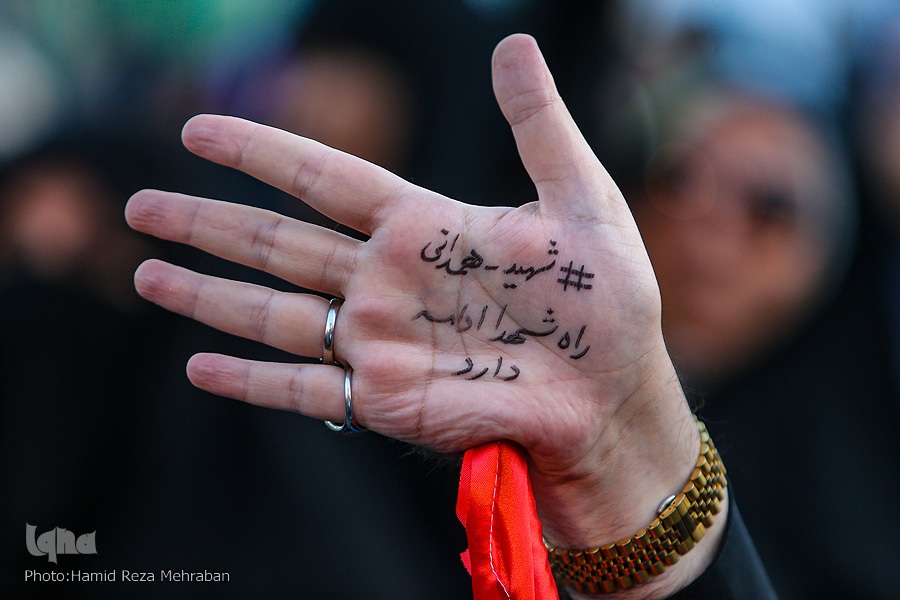 #شهید-همدانی
راه شهدا ادامه
دارد
iqna
Photo:Hamid Reza Mehraban